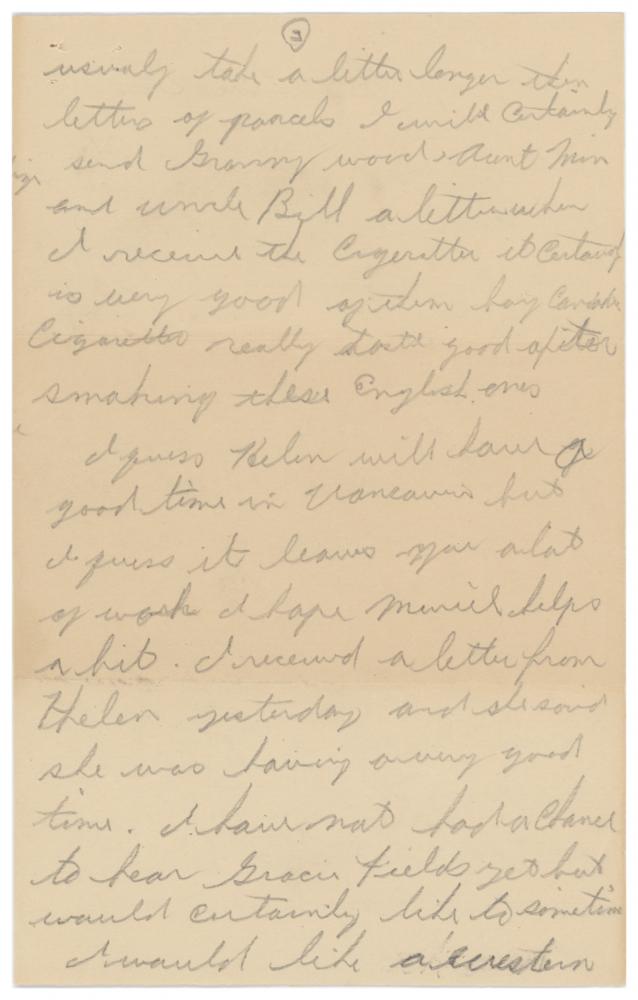 3
usualy take a little longer then
letters of parcels I will Certainly
send Granny wood, Aunt Min
and uncle Bill a letter when
I receive the Cigeretts it Certainly
is very good of them boy Canadian
Cigaretts really taste good after
smoking these English ones
I guess Helen will have a
good time in Vancouver but
I guess it leaves you a lot
of work I hope Muriel helps
a bit. I received a letter from
Helen yesterday and she said
she was having a very good
time. I have not had a Chance
to hear Gracie Fields yet but
would certainly like to sometime
I would like a western